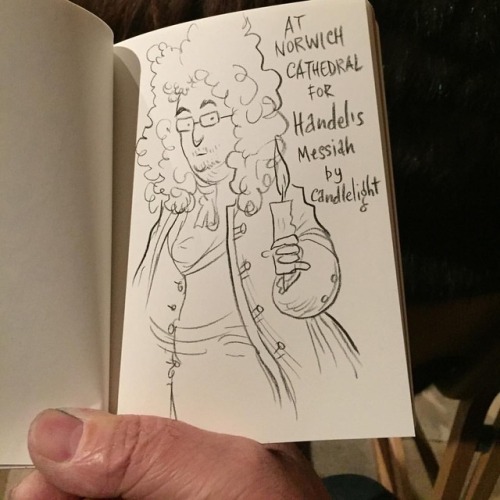 AT
NORWICH
CATHEDRAL
FOR
Handel's
Messiah
by
candlelight